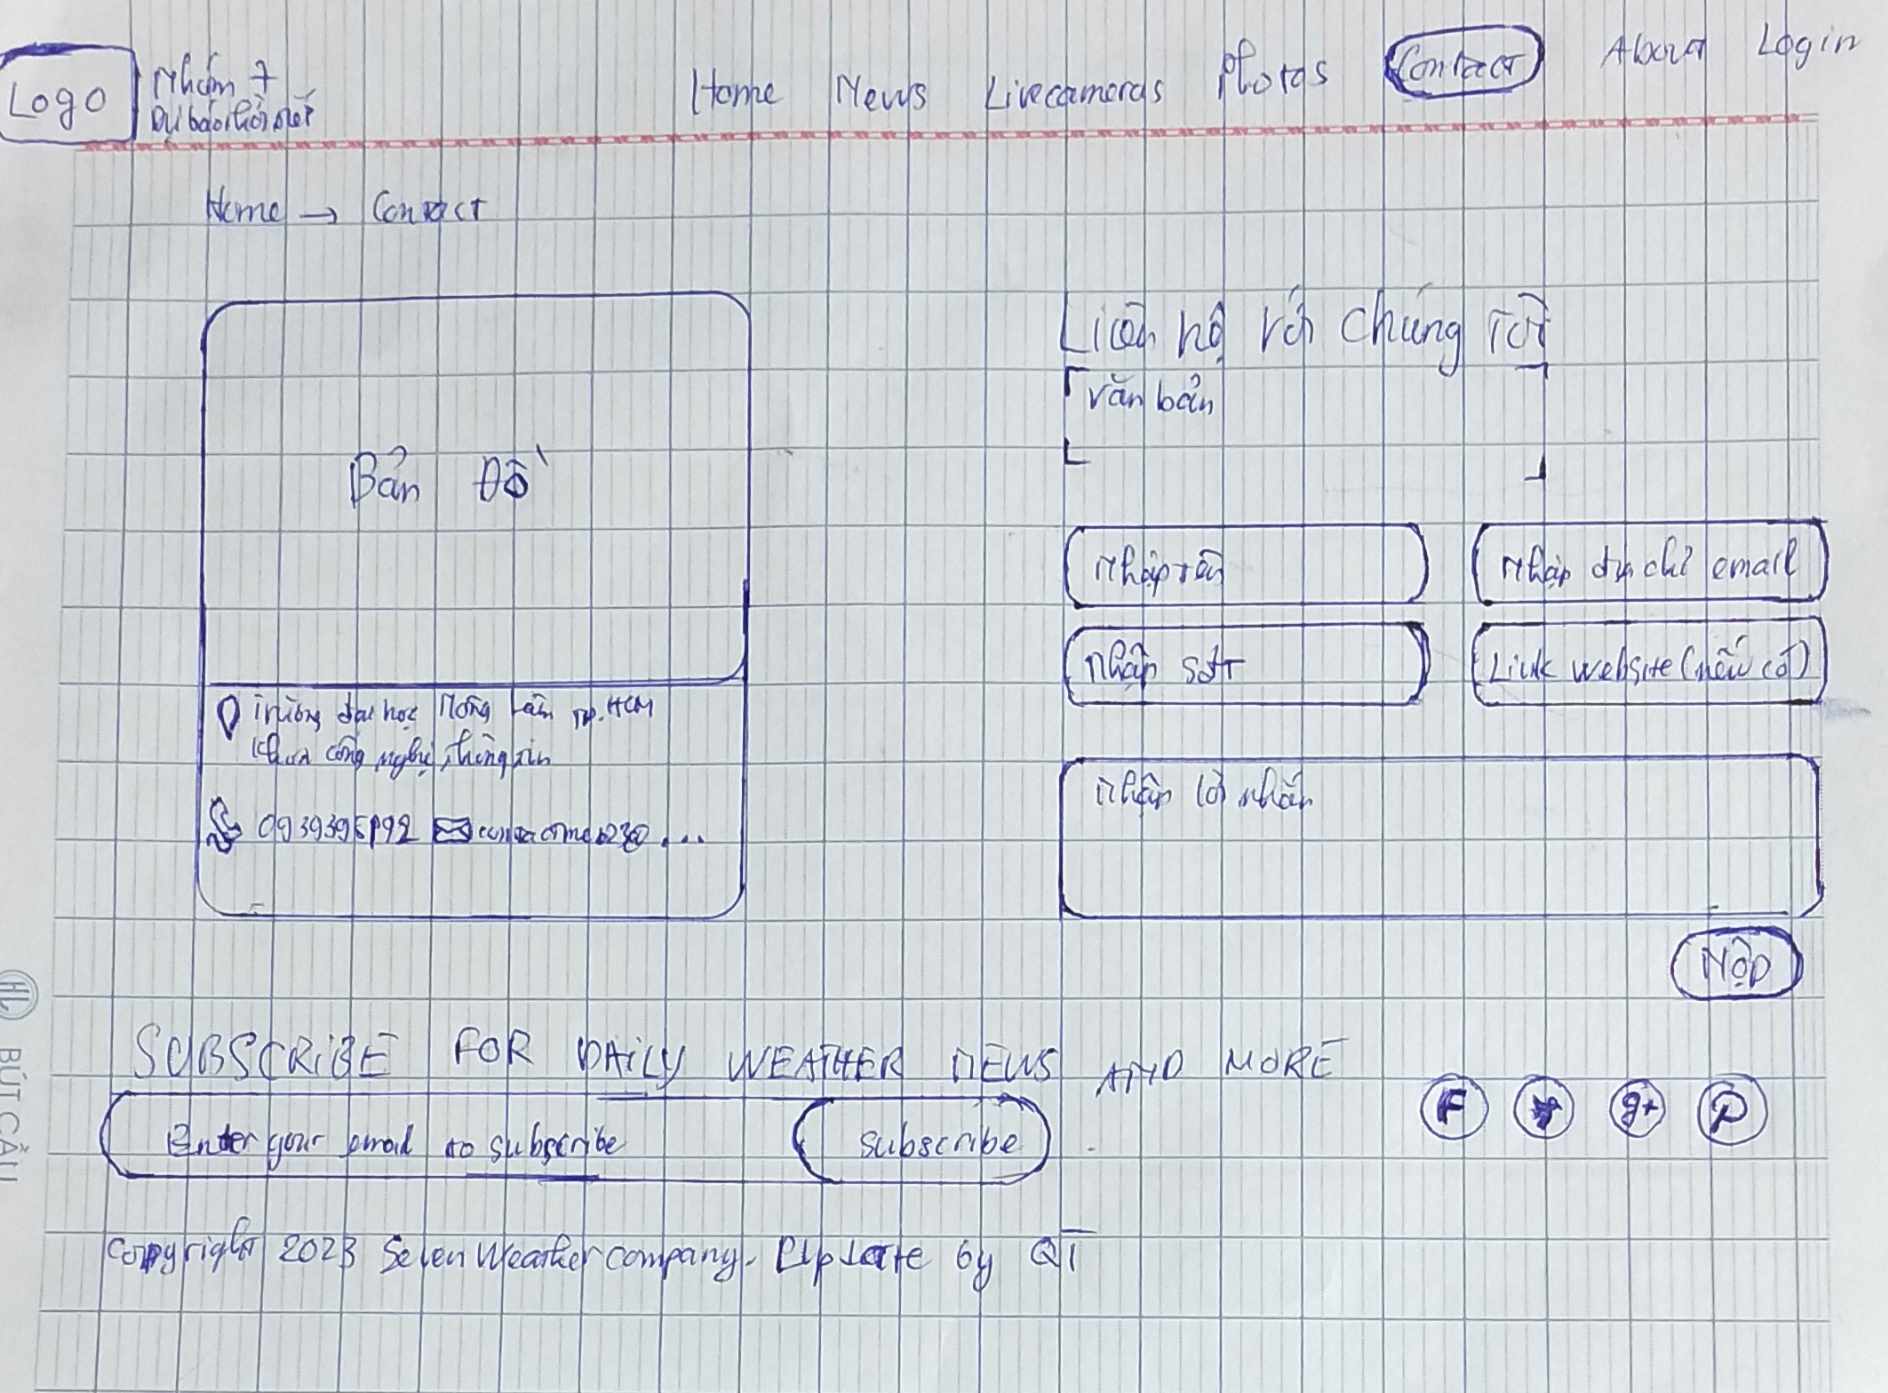 Logo
Nhóm 7
Dự báo thời tiết
Home News Livecameras Photos Contact About Login
Home → Contact
Bản Đồ
Trường đại học Nông Lâm TP.HCM
Khoa công nghệ thông tin
Liên hệ với chúng tôi
văn bản
Nhập tên
Nhập địa chỉ email
Nhập sđt
Link website (nếu có)
Nhập lời nhắn
Nộp
SUBSCRIBE FOR DAILY WEATHER NEWS AND MORE
Enter your email to subscribe
subscribe
F
g+
P
Copyright 2023 Seven Weather company. Update by QT
HL BÚT CẦU